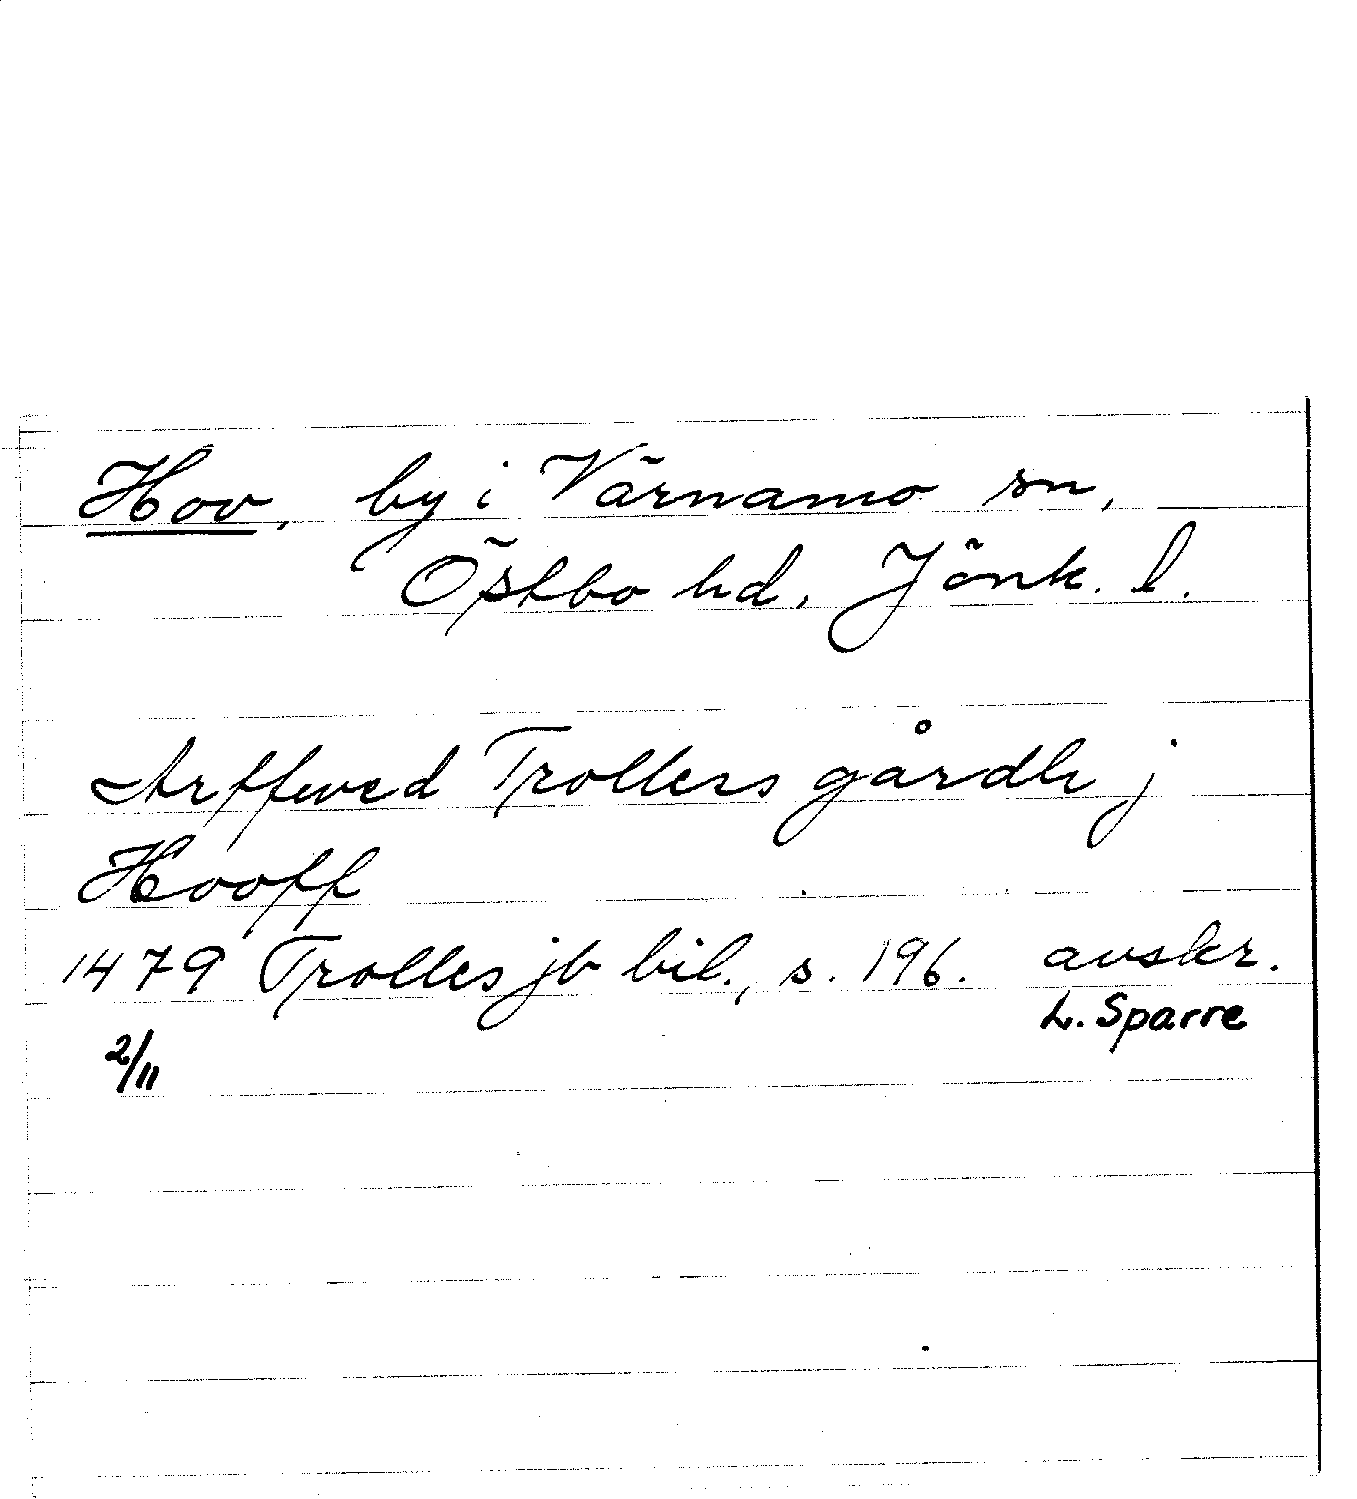 Hov, by i Värnamo sn,
Östbo hd, Jönk. l.
Arffwed Trollers gårdh j
Hooff
1479 Trolles jb bil., s. 196. avskr.
L. Sparre
2/11